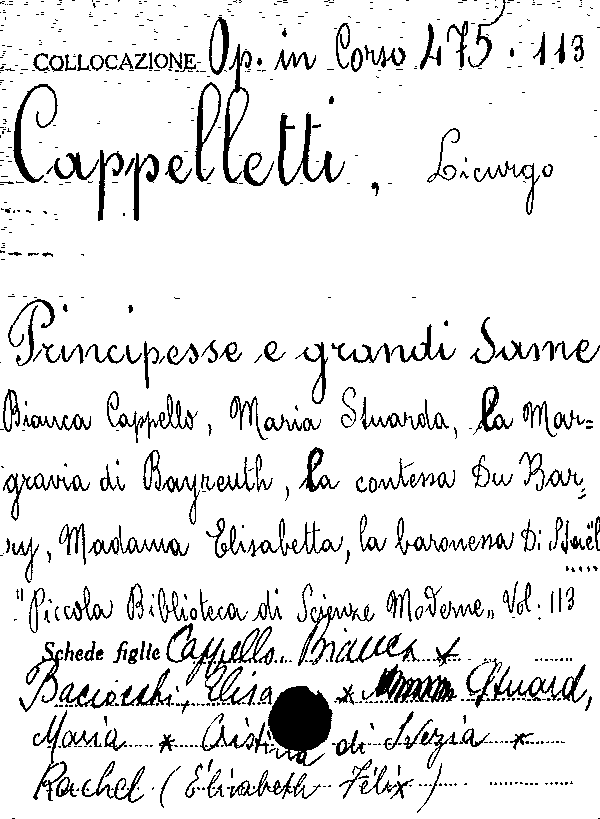 COLLOCAZIONE Op. in Corso 475. 113
Cappelletti, Licurgo
Principesse e grandi Dame
Bianca Cappello, Maria Stuarda, la Mar=
gravia di Bayreuth, la contessa Du Bar=
ry, Madama Elisabetta, la baronessa Di Staël
"Piccola Biblioteca di Scienze Moderne„ Vol. 113
Schede figlie Cappello. Bianca *
Baciocchi, Elisa * Stuard,
Maria * Cristina di Svezia *
Rachel (Élisabeth Félix)